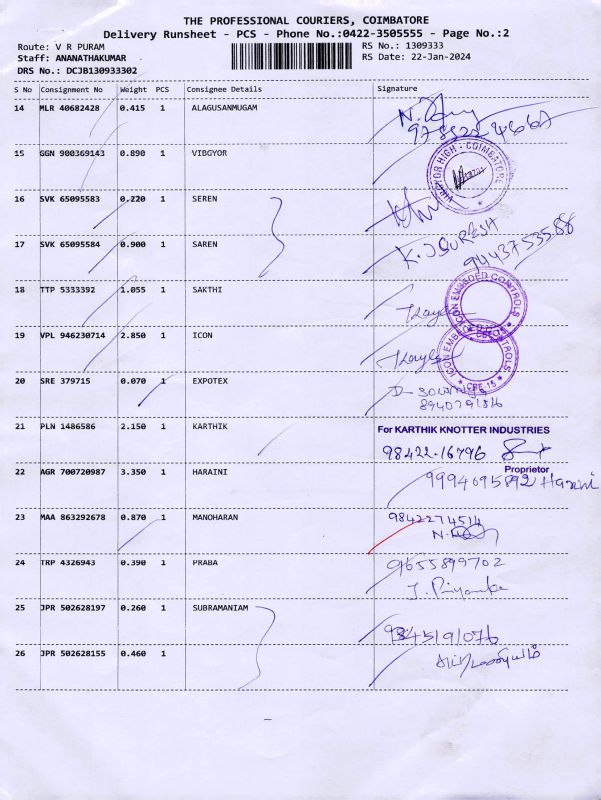 THE PROFESSIONAL COURIERS, COIMBATORE
Delivery Runsheet - PCS - Phone No.:0422-3505555 - Page No.:2
Route: V R PURAM
RS No.: 1309333
Staff: ANANATHAKUMAR
RS Date: 22-Jan-2024
DRS No.: DCJB130933302
S No Consignment No Weight PCS Consignee Details Signature
14 MLR 40682428 0.415 1 ALAGUSANMUGAM
15 GGN 900369143 0.890 1 VIBGYOR
VIBGYOR HIGH - COIMBATORE
16 SVK 65095583 0.220 1 SEREN
17 SVK 65095584 0.900 1 SAREN
K. SURESH
9443753588
18 TTP 5333392 1.055 1 SAKTHI
ICON EMBEDED CONTROLS
19 VPL 946230714 2.850 1 ICON
ICON EMBEDED CONTROLS
CBE.15
20 SRE 379715 0.070 1 EXPOTEX
21 PLN 1486586 2.150 1 KARTHIK
For KARTHIK KNOTTER INDUSTRIES
98422-16796
Proprietor
22 AGR 700720987 3.350 1 HARAINI
9994095892 Harini
23 MAA 863292678 0.870 1 MANOHARAN
9842274514
24 TRP 4326943 0.390 1 PRABA
9655899702
J. Priyanka
25 JPR 502628197 0.260 1 SUBRAMANIAM
9845191076
26 JPR 502628155 0.460 1